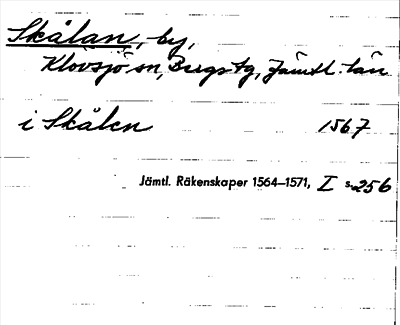 Skålan, by,
Klövsjö sn, Bergs tg, Jämtl. län
i Skålen 1567
Jämtl. Räkenskaper 1564–1571, I s. 256